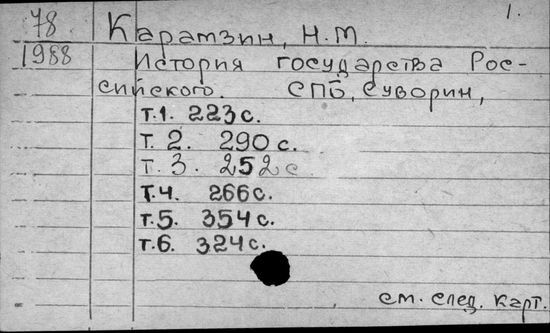 1.
78
1988
Карамзин, Н.М.
История государства Рос-
сийского. СПб, Суворин,
т.1. 223 с.
Т. 2. 290 с.
Т. 3. 252 с
Т.4. 266 с.
т.5. 354 с.
т.6. 324 с.
см. след. карт.